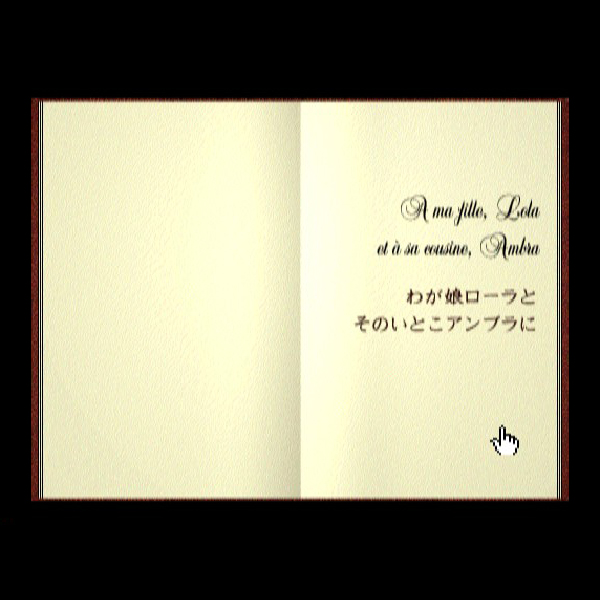 A ma fille, Lola
et à sa cousine, Ambra
わが娘ローラと
そのいとこアンブラに